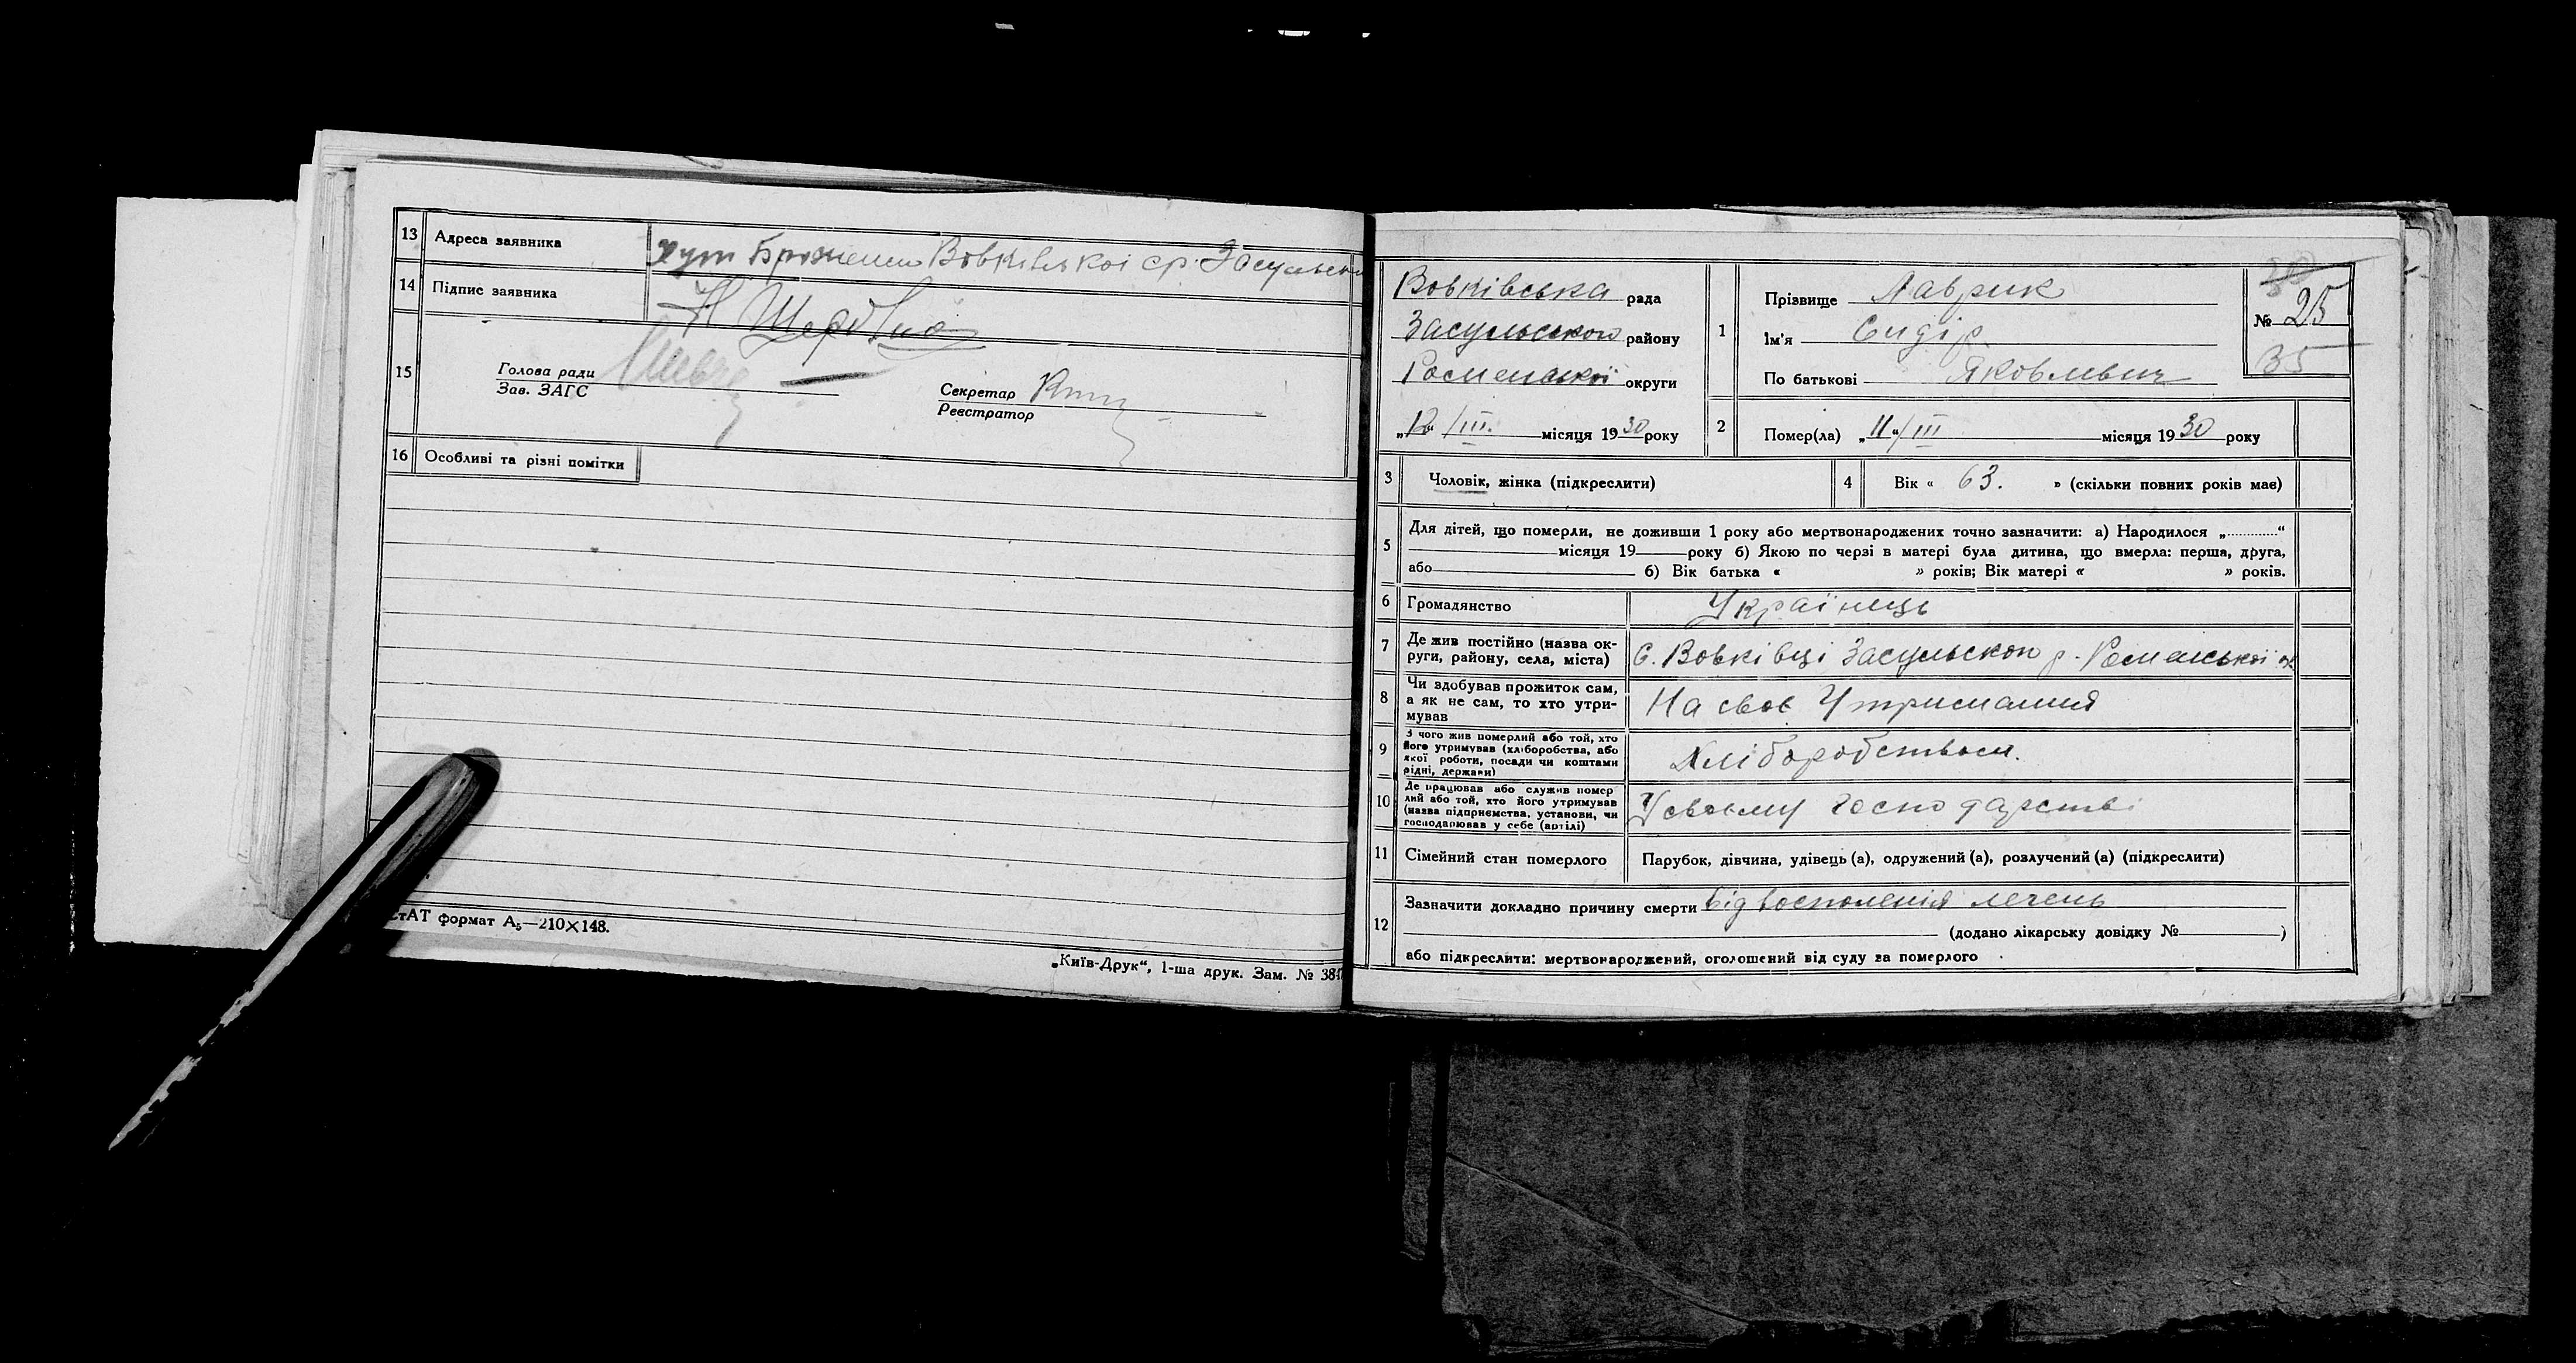 13 Адреса заявника хут Вовківської ср. Засульськ
14 Підпис заявника
15
Голова ради
Зав. ЗАГС
Секретар
Реєстратор
16 Особливі та різні помітки
стАТ формат А₅—210×148.
„Київ-Друк“, 1-ша друк. Зам. № 384
Вовківська рада
Засульського району
Роменської округи
„12“/III. місяця 1930 року
1 Прізвище Лаврик
Ім'я Сидір
По батькові Яковлевич
№ 25
35
2 Помер(ла) „11“/III місяця 1930 року
3 Чоловік, жінка (підкреслити)
4 Вік « 63. » (скільки повних років має)
5 Для дітей, що померли, не доживши 1 року або мертвонароджених точно зазначити: а) Народилося „............“
місяця 19 року б) Якою по черзі в матері була дитина, що вмерла: перша, друга,
або б) Вік батька « » років; Вік матері « » років.
6 Громадянство Українець
7 Де жив постійно (назва ок-
руги, району, села, міста) С. Вовківці Засульского р. Роменської ок.
8 Чи здобував прожиток сам,
а як не сам, то хто утри-
мував На своє Утримання
9 З чого жив померлий або той, хто
його утримував (хліборобства, або
якої роботи, посади чи коштами
рідні, держави) Хліборобством.
10 Де працював або служив помер
лий або той, хто його утримував
(назва підприємства, установи, чи
господарював у себе (артілі) У своєму господарстві
11 Сімейний стан померлого Парубок, дівчина, удівець (а), одружений (а), розлучений (а) (підкреслити)
12 Зазначити докладно причину смерти Від восполенія лечень
(додано лікарську довідку № )
або підкреслити: мертвонароджений, оголошений від суду за померлого